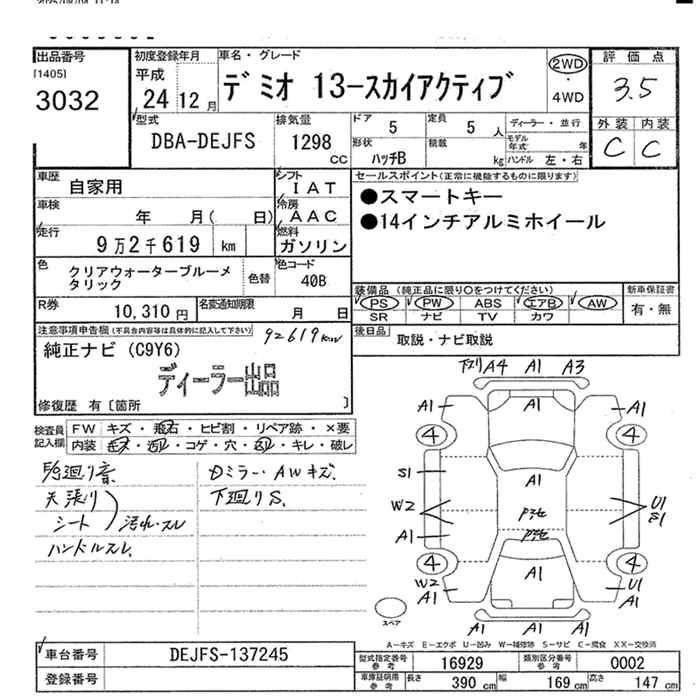 出品番号
[1405]
3032
初度登録年月
平成
24 12 月
車名・グレード
デミオ 13-スカイアクティブ
2WD
・
4WD
評価点
3.5
外装 内装
C C
型式
DBA-DEJFS
排気量
1298
CC
ドア 5
定員 5 人
形状 ハッチB
積載 kg
ディーラー・並行
モデル年式 年
ハンドル 左・右
車歴 自家用
シフト IAT
車検 年 月( 日)
冷房 AAC
走行 9万2千619 km
燃料 ガソリン
色 クリアウォーターブルーメタリック
色替
色コード 40B
R券 10,310円
名変通知期限 月 日
セールスポイント(正常に機能するものに限ります)
●スマートキー
●14インチアルミホイール
装備品(純正品に限り○をつけてください)
PS PW ABS エアB AW
SR ナビ TV カワ
新車保証書
有・無
後日品 取説・ナビ取説
注意事項申告欄(不具合内容等は具体的に記入して下さい)
92619km
純正ナビ (C9Y6)
ディーラー出品
修復歴 有〔箇所 〕
検査員記入欄
FW キズ・飛石・ヒビ割・リペア跡・×要
内装 キズ・汚れ・コゲ・穴・スレ・キレ・破レ
天張り
シート 汚れ・スレ
ハンドルスレ
Dミラー・AWキズ
下廻りS.
下廻り A4 A1 A3
A1 A1 A1
4 4
S1 A1
W2 U1
S1
A1
4 4
W2 A1 U1
A1 A1
A1 A1 A1
スペア
A-キズ E-エクボ U-凹み W-補修跡 S-サビ C-腐食 XX-交換済
車台番号 DEJFS-137245
登録番号
型式指定番号 参考 16929
類別区分番号 参考 0002
車庫証明用 参考 長さ 390 cm 幅 169 cm 高さ 147 cm